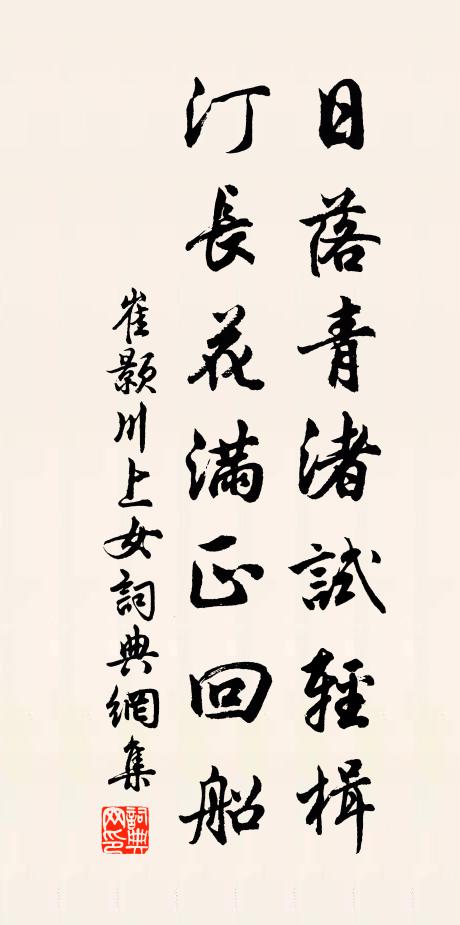 日落青渚試輕楫
汀長花滿正回船
崔顥川上女詞典網集
詞典網印